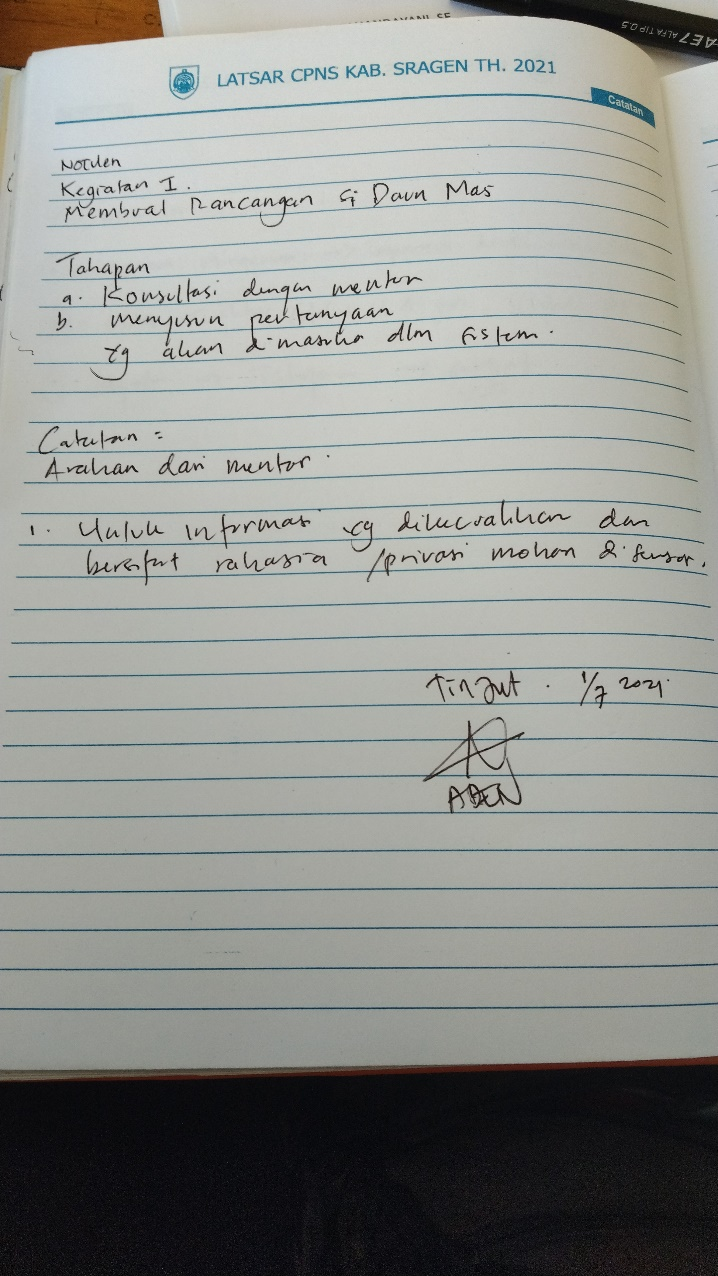 AE7 ALFATIP 0.5
LATSAR CPNS KAB. SRAGEN TH. 2021
Catatan
Notulen
Kegiatan I.
Membuat Rancangan Si Daun Mas
Tahapan
a. Konsultasi dengan mentor
b. menyusun pertanyaan
yg akan dimasuka dlm sistem.
Catatan =
Arahan dari mentor.
1. Untuk informasi yg dikecualikan dan
bersifat rahasia /privasi mohon disensor.
Tinjut . 1/7 2021.